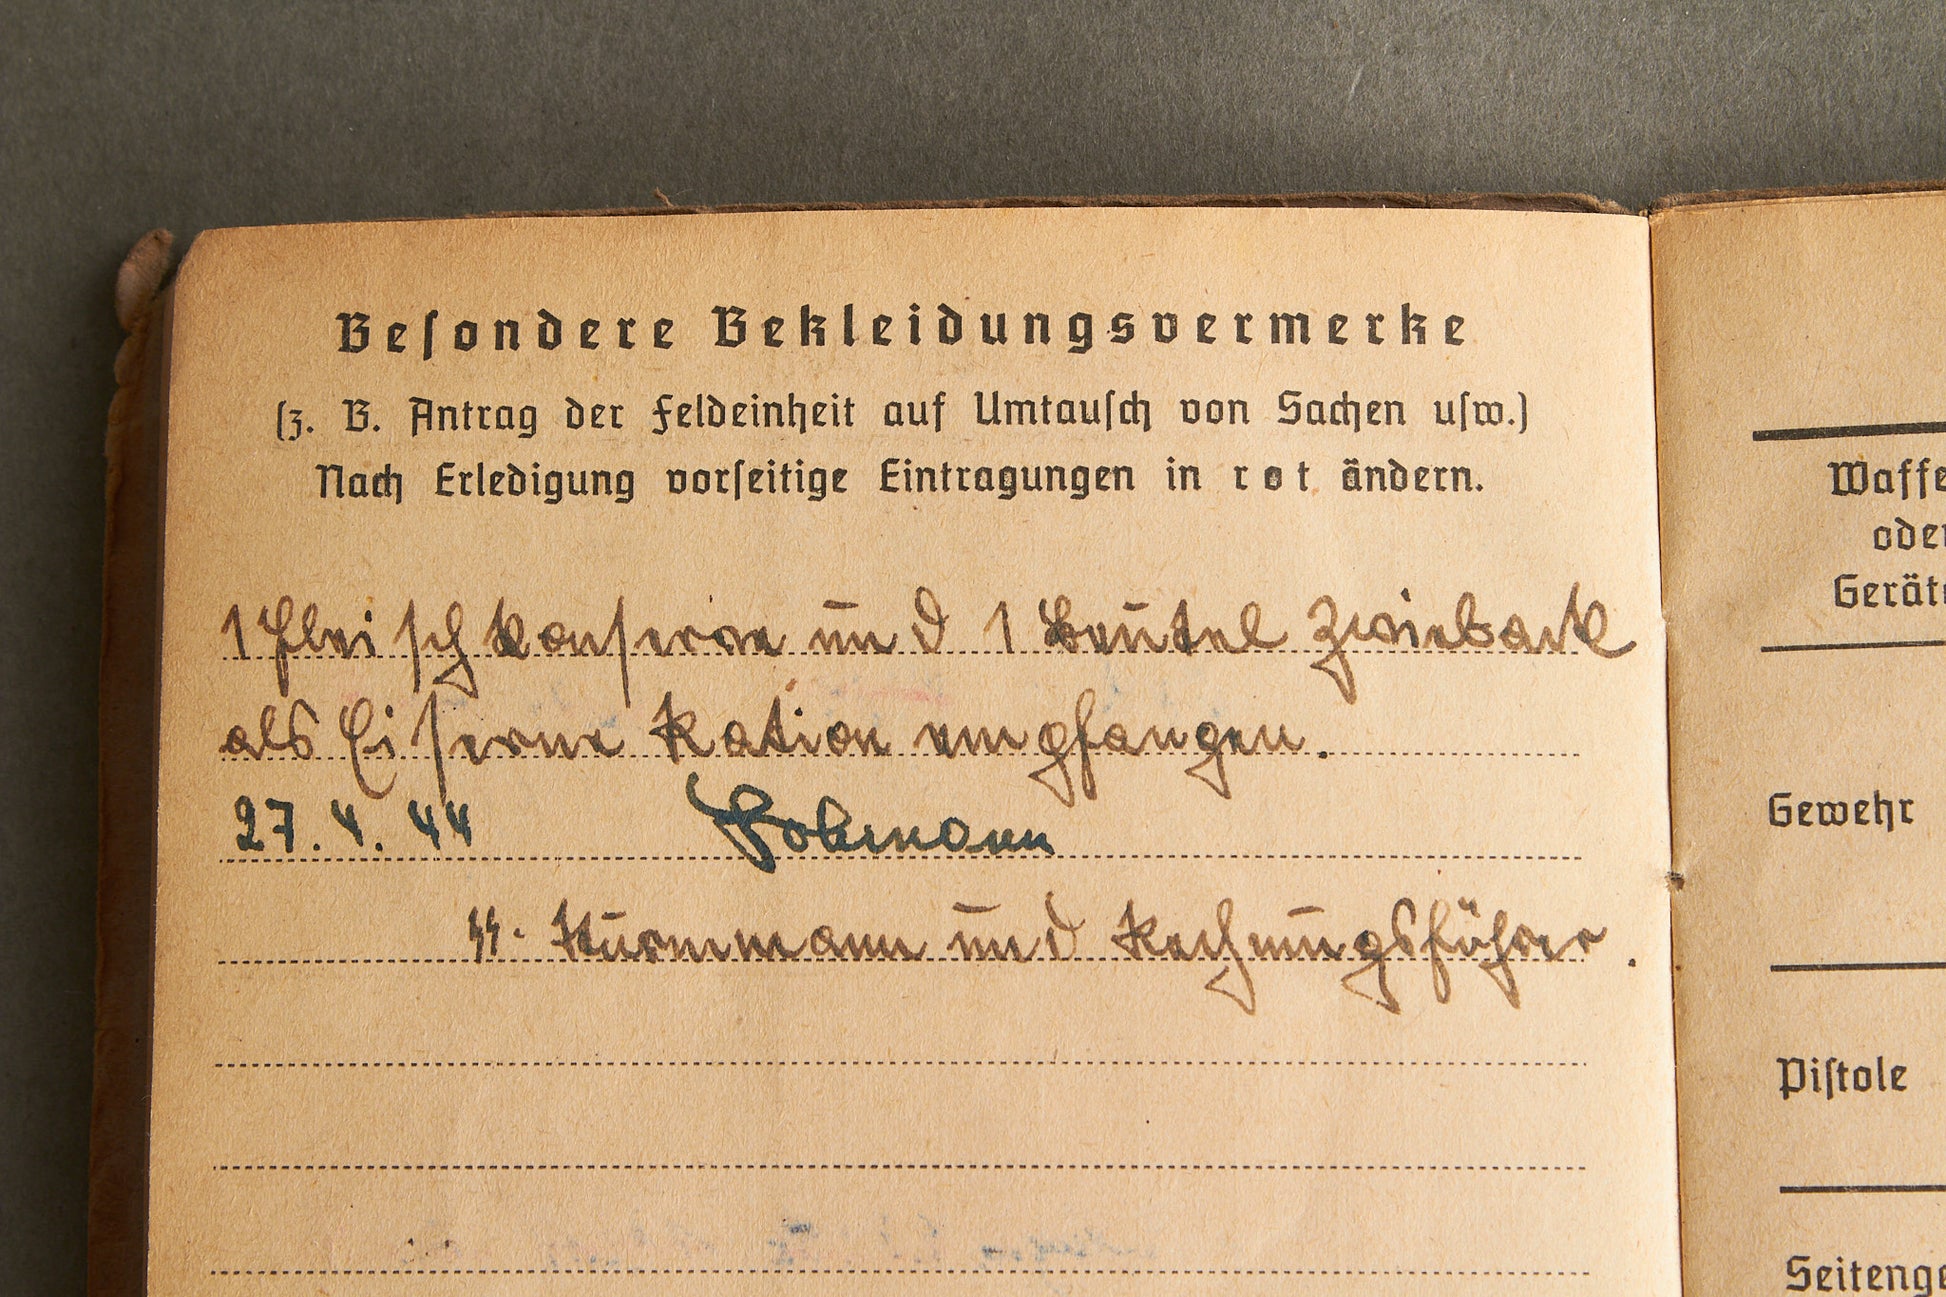 Besondere Bekleidungsvermerke
(z. B. Antrag der Feldeinheit auf Umtausch von Sachen usw.)
Nach Erledigung vorseitige Eintragungen in rot ändern.
1 Fleischkonserve und 1 Beutel Zwieback
als Eiserne Ration empfangen.
27.4.44
SS-Sturmmann und Rechnungsführer.
Waffe
oder
Geräte
Gewehr
Pistole
Seitenge